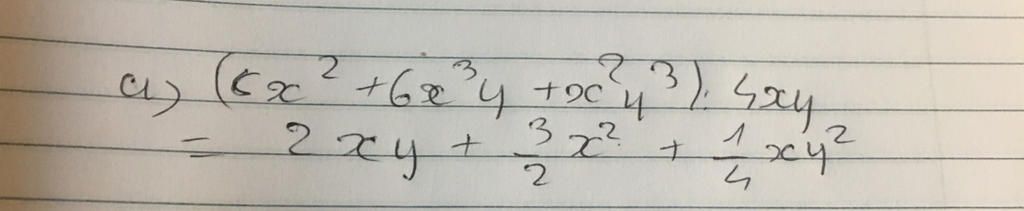 a) (6x² + 6x³y + x²y³) : 4xy
= 2xy + 3/2 x² + 1/4 xy²